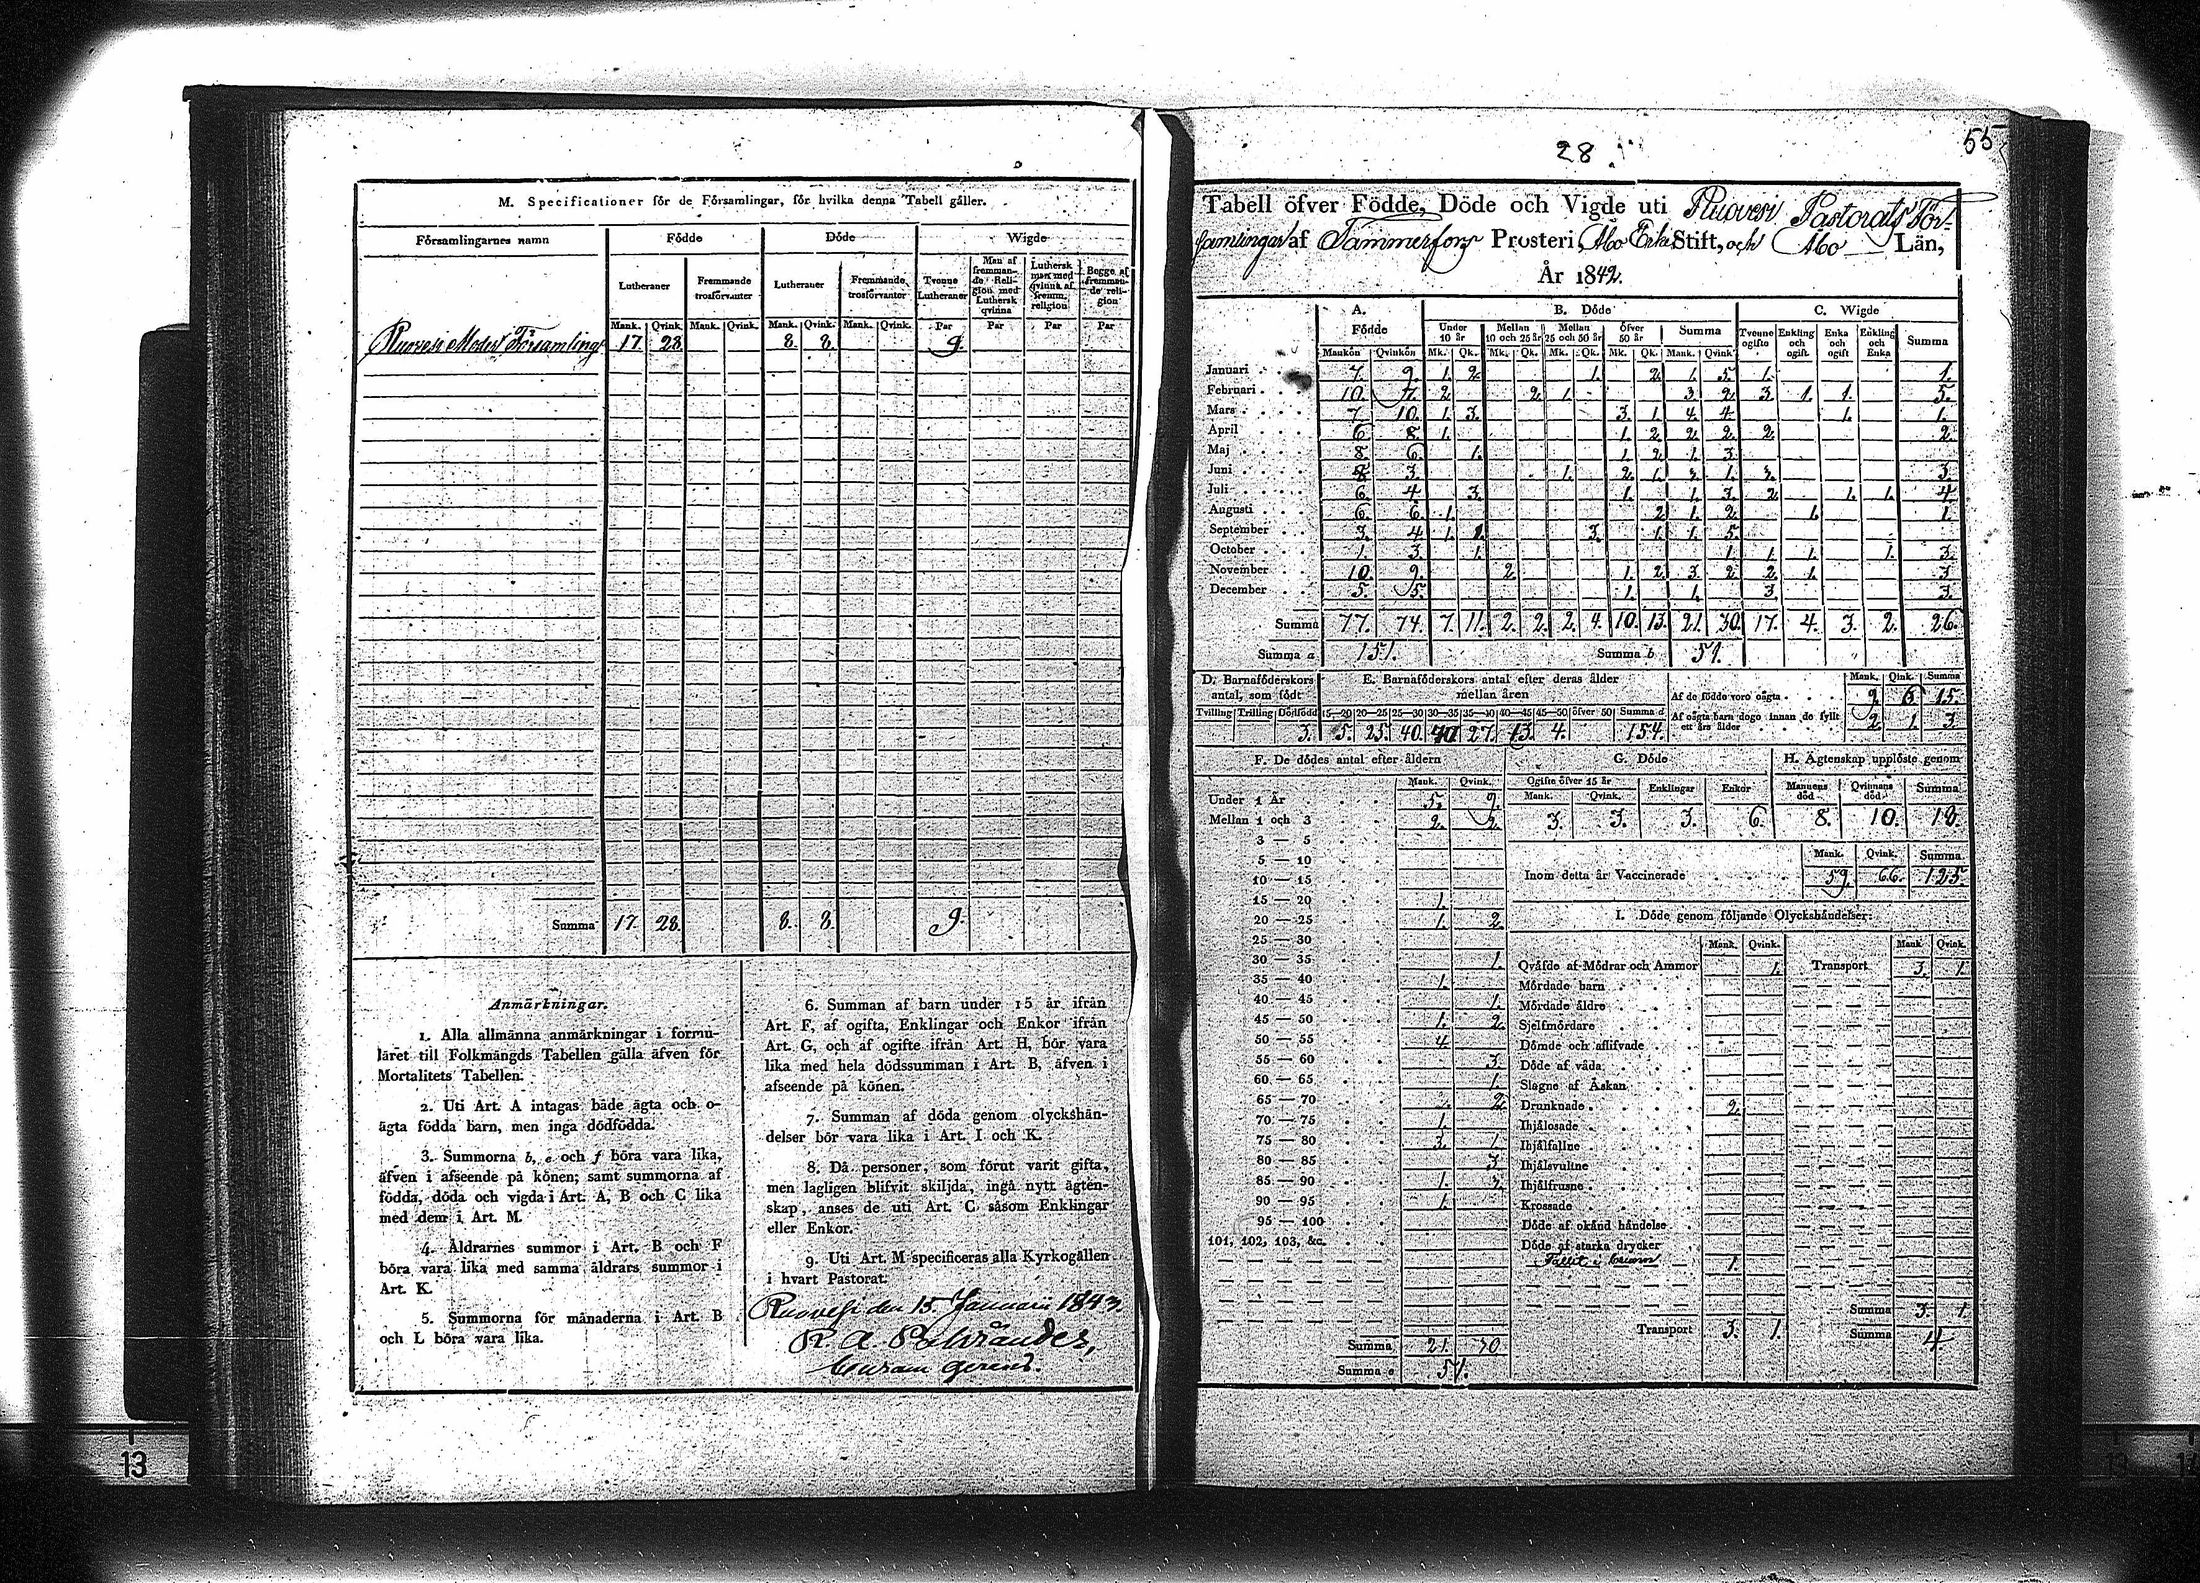 M. Specificationer för de Församlingar, för hvilka denna Tabell gäller.
Församlingarnes namn Födde Döde Wigde
Lutheraner Fremmande trosförvanter Lutheraner Fremmande trosförvanter Tvenne Lutheraner Man af fremmande Religion med Luthersk qvinna Luthersk man med qvinna af fremm. religion Begge af fremmande religion
Mank. Qvink. Mank. Qvink. Mank. Qvink. Mank. Qvink. Par Par Par Par
Ruovesi Moder Församling 17 28 8. 8. 9.
Summa 17. 28. 8. 8. 9.
Anmärkningar.
1. Alla allmänna anmärkningar i formu-
läret till Folkmängds Tabellen gälla äfven för
Mortalitets Tabellen.
2. Uti Art. A intagas både ägta och o-
ägta födda barn, men inga dödfödda.
3. Summorna b, e och f böra vara lika,
äfven i afseende på könen; samt summorna af
födda, döda och vigda i Art. A, B och C lika
med dem i Art. M.
4. Åldrarnes summor i Art. B och F
böra vara lika med samma åldrars summor i
Art. K.
5. Summorna för månaderna i Art. B
och L böra vara lika.
6. Summan af barn under 15 år ifrån
Art. F, af ogifta, Enklingar och Enkor ifrån
Art. G, och af ogifte ifrån Art. H, bör vara
lika med hela dödssumman i Art. B, äfven i
afseende på könen.
7. Summan af döda genom olyckshän-
delser bör vara lika i Art. I och K.
8. Då personer, som förut varit gifta,
men lagligen blifvit skiljda, ingå nytt ägten-
skap, anses de uti Art. C såsom Enklingar
eller Enkor.
9. Uti Art. M specificeras alla Kyrkogällen
i hvart Pastorat.
Ruovesi den 15 Januarii 1843.
Curam gerens.
55
28
Tabell öfver Födde, Döde och Vigde uti Ruovesi Pastorats För-
samlingar af Tammerfors Prosteri, Åbo Erke Stift, och Åbo Län,
År 1842.
A. B. Döde C. Wigde
Födde Under 10 år Mellan 10 och 25 år Mellan 25 och 50 år Öfver 50 år Summa Tvenne ogifte Enkling och ogift Enka och ogift Enkling och Enka Summa
Mankön Qvinkön Mk. Qk. Mk. Qk. Mk. Qk. Mk. Qk. Mank. Qvink.
Januari 7. 9. 1. 2. 1. 2. 1. 5. 1. 1.
Februari 10. 7. 2. 2. 1. 3. 2. 3. 1. 1. 5.
Mars 7 10. 1. 3. 3. 1. 4. 4. 1. 1.
April 6 8. 1. 1. 2. 2. 2. 2. 2.
Maj 8. 6. 1. 1. 2. 1. 3.
Juni 8 3. 1. 2. 1. 3. 1. 3. 3.
Juli 6. 4. 3. 1. 1. 3. 2. 1. 1. 4.
Augusti 6 6. 1. 2. 1. 2. 1. 1.
September 3. 4. 1. 1. 3. 1. 1. 5.
October 1. 3. 1. 1. 1. 1. 1. 3.
November 10. 9. 2. 1. 2. 3. 2. 2. 1. 3.
December 5. 5. 1. 1. 3. 3.
Summa 77. 74. 7. 11. 2. 2. 2. 4. 10. 13. 21. 30. 17. 4. 3. 2. 26.
Summa a 151. Summa b 51.
D. Barnaföderskors antal, som födt
Tvilling Trilling Dödfödd
3.
E. Barnaföderskors antal efter deras ålder mellan åren
15—20 20—25 25—30 30—35 35—40 40—45 45—50 öfver 50 Summa d
5. 25. 40. 40. 27. 13. 4. 154.
Mank. Qink. Summa
Af de födde voro oägta 9. 6. 15.
Af oägta barn dogo innan de fyllt ett års ålder 2. 1. 3.
F. De dödes antal efter åldern
Mank. Qvink.
Under 1 År 5. 9.
Mellan 1 och 3 2. 2.
3 — 5
5 — 10
10 — 15
15 — 20 1.
20 — 25 1. 2.
25 — 30
30 — 35 1.
35 — 40 1.
40 — 45 1.
45 — 50 1. 2.
50 — 55 4.
55 — 60 3.
60 — 65 1.
65 — 70 2.
70 — 75 1.
75 — 80 3. 1.
80 — 85 3.
85 — 90 1. 3.
90 — 95 1.
95 — 100
101, 102, 103, &c.
Summa 21. 30.
Summa e 51.
G. Döde
Ogifte öfver 15 år Enklingar Enkor
Mank. Qvink.
3. 3. 3. 6.
H. Ägtenskap upplöste genom
Mannens död Qvinnans död Summa
8. 10. 18.
Mank. Qvink. Summa
Inom detta år Vaccinerade 59. 66. 125.
I. Döde genom följande Olyckshändelser:
Mank. Qvink. Mank. Qvink.
Qväfde af Mödrar och Ammor 1. Transport 3. 1.
Mördade barn
Mördade äldre
Sjelfmördare
Dömde och aflifvade
Döde af våda
Slagne af Åskan
Drunknade 2.
Ihjälosade
Ihjälfallne
Ihjälsvultne
Ihjälfrusne
Krossade
Döde af okänd händelse
Döde af starka drycker
Fallit i brunn 1.
Summa 3. 1.
Transport 3. 1. Summa 4
13
13